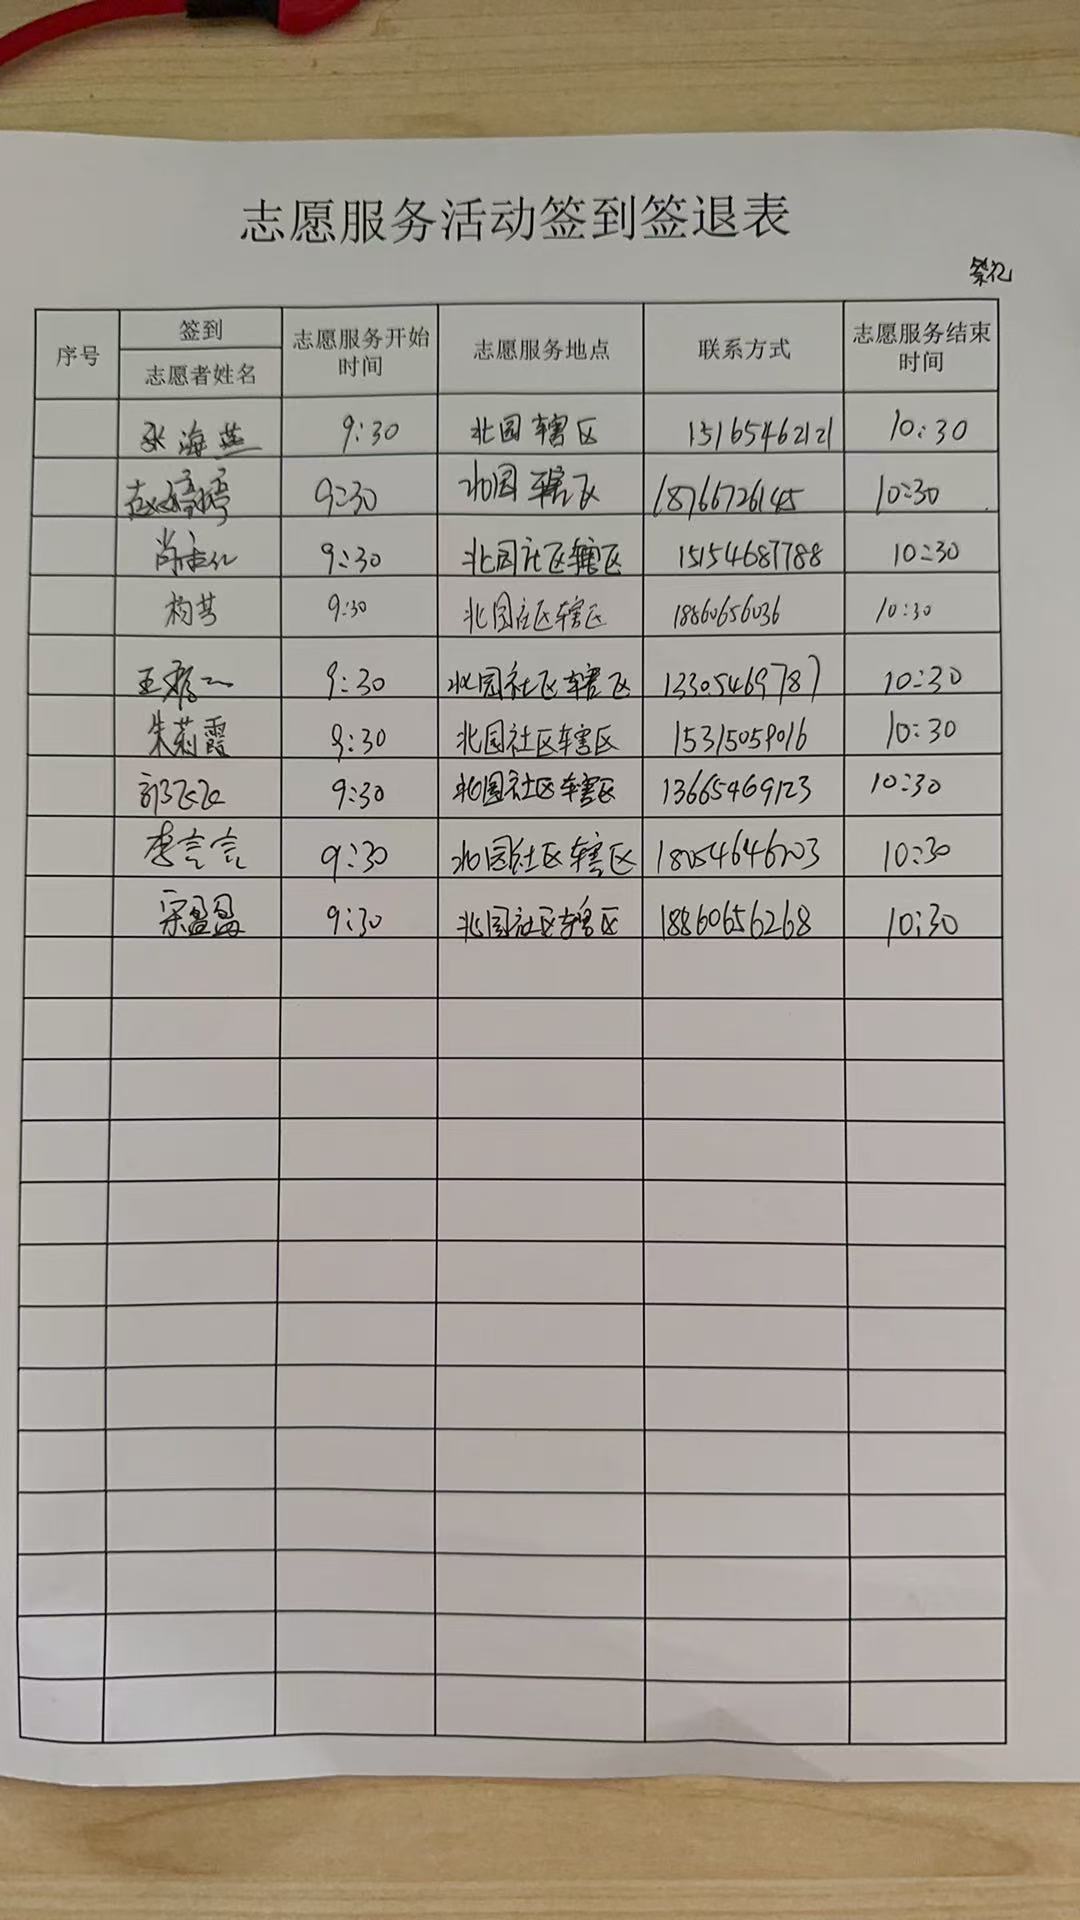 志愿服务活动签到签退表
祭祀
序号 签到 志愿者姓名 志愿服务开始时间 志愿服务地点 联系方式 志愿服务结束时间
张海燕 9:30 北园辖区 15165462121 10:30
赵婷婷 9:30 北园辖区 18766726145 10:30
9:30 北园社区辖区 15154687788 10:30
9:30 北园社区辖区 18860656036 10:30
9:30 北园社区辖区 13305469787 10:30
朱莉霞 9:30 北园社区辖区 15315059016 10:30
9:30 北园社区辖区 13665469123 10:30
李言言 9:30 北园社区辖区 18054646203 10:30
宋盈盈 9:30 北园社区辖区 18860656268 10:30